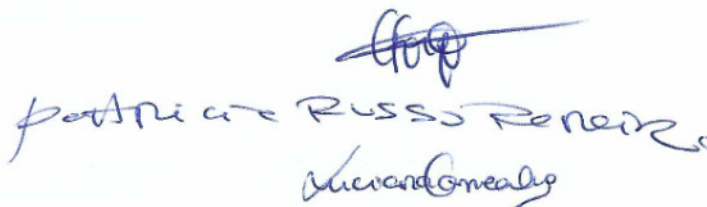 Patricia Russo Pereira
Luciana Gonçalves